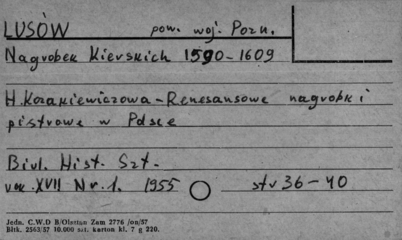 LUSÓW pow. woj. Pozn.
Nagrobek Kierskich 1590-1609
H. Kozakiewiczowa - Renesansowe nagrobki
piętrowe w Polsce
Biul. Hist. Szt.
rok XVII Nr. 1. 1955 str 36-40
Jedn. C.W.D B/Olsztan Zam 2776 /on/57
Bltk. 2563/57 10.000 szt. karton kl. 7 g 220.